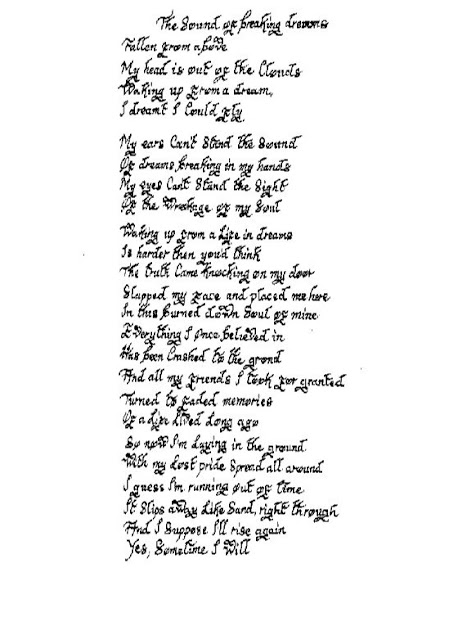 The Sound of breaking dreams
Fallen from above
My head is out of the Clouds
Waking up from a dream,
I dreamt I Could fly.
My ears Can't Stand the Sound
Of dreams breaking in my hands
My eyes Can't Stand the Sight
Of the Wreckage of my Soul
Waking up from a Life in dreams
Is harder then you'd think
The truth Came Knocking on my door
Slapped my face and placed me here
In this burned down Soul of mine
Everything I Once believed in
Has been Crashed to the grond
And all my friends I took for granted
Turned to faded memories
Of a Life Lived Long ago
So now I'm Laying in the ground
With my Lost pride Spread all around
I guess I'm running out of time
It Slips away Like Sand, right through
And I Suppose I'll rise again
Yes, Sometime I Will